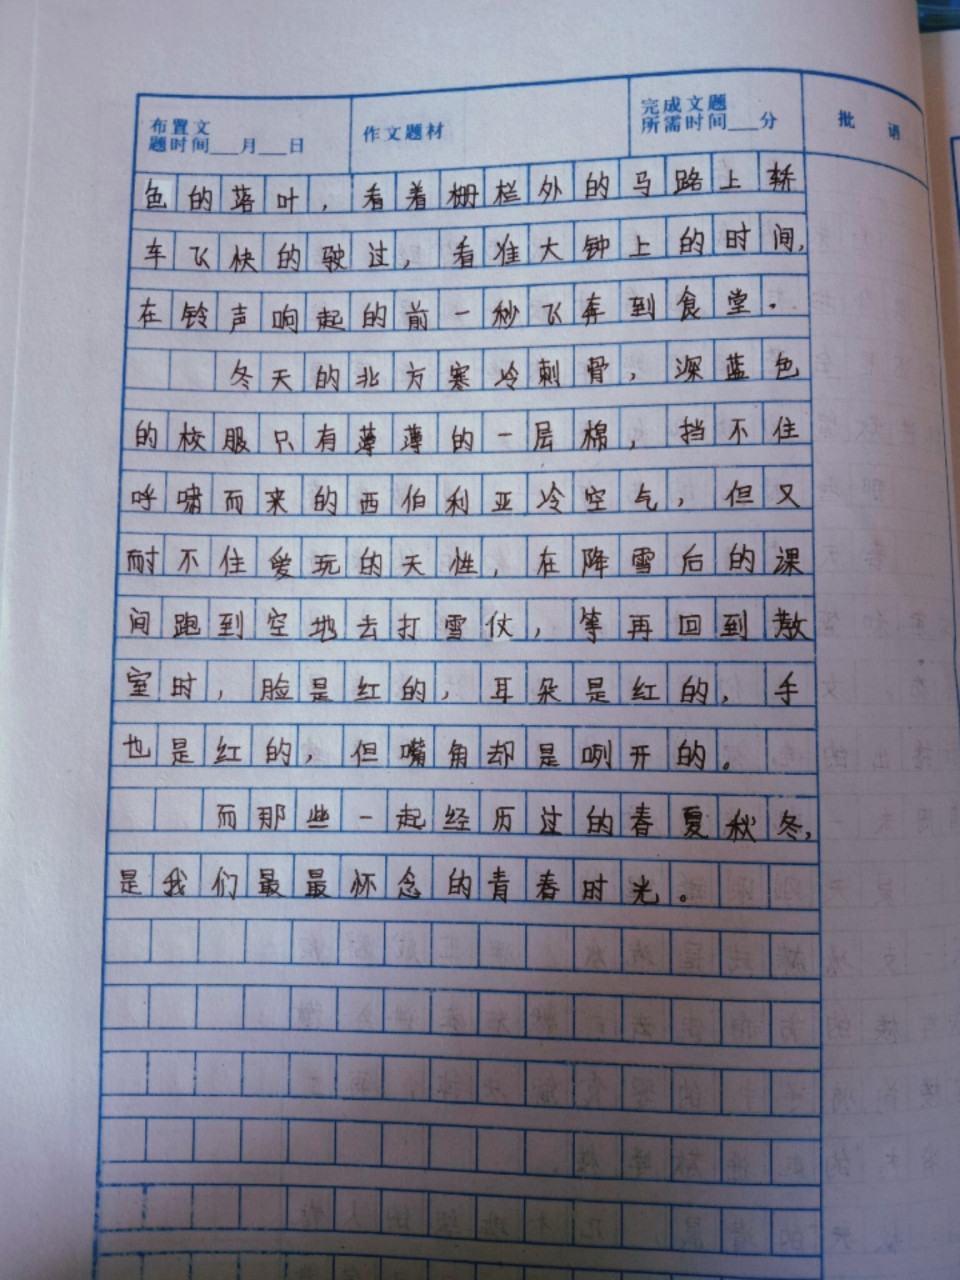 布置文
题时间___月___日
作文题材
完成文题
所需时间___分
批 语
色的落叶，看着栅栏外的马路上轿
车飞快的驶过，看准大钟上的时间，
在铃声响起的前一秒飞奔到食堂。
冬天的北方寒冷刺骨，深蓝色
的校服只有薄薄的一层棉，挡不住
呼啸而来的西伯利亚冷空气，但又
耐不住爱玩的天性，在降雪后的课
间跑到空地去打雪仗，等再回到教
室时，脸是红的，耳朵是红的，手
也是红的，但嘴角却是咧开的。
而那些一起经历过的春夏秋冬，
是我们最最怀念的青春时光。